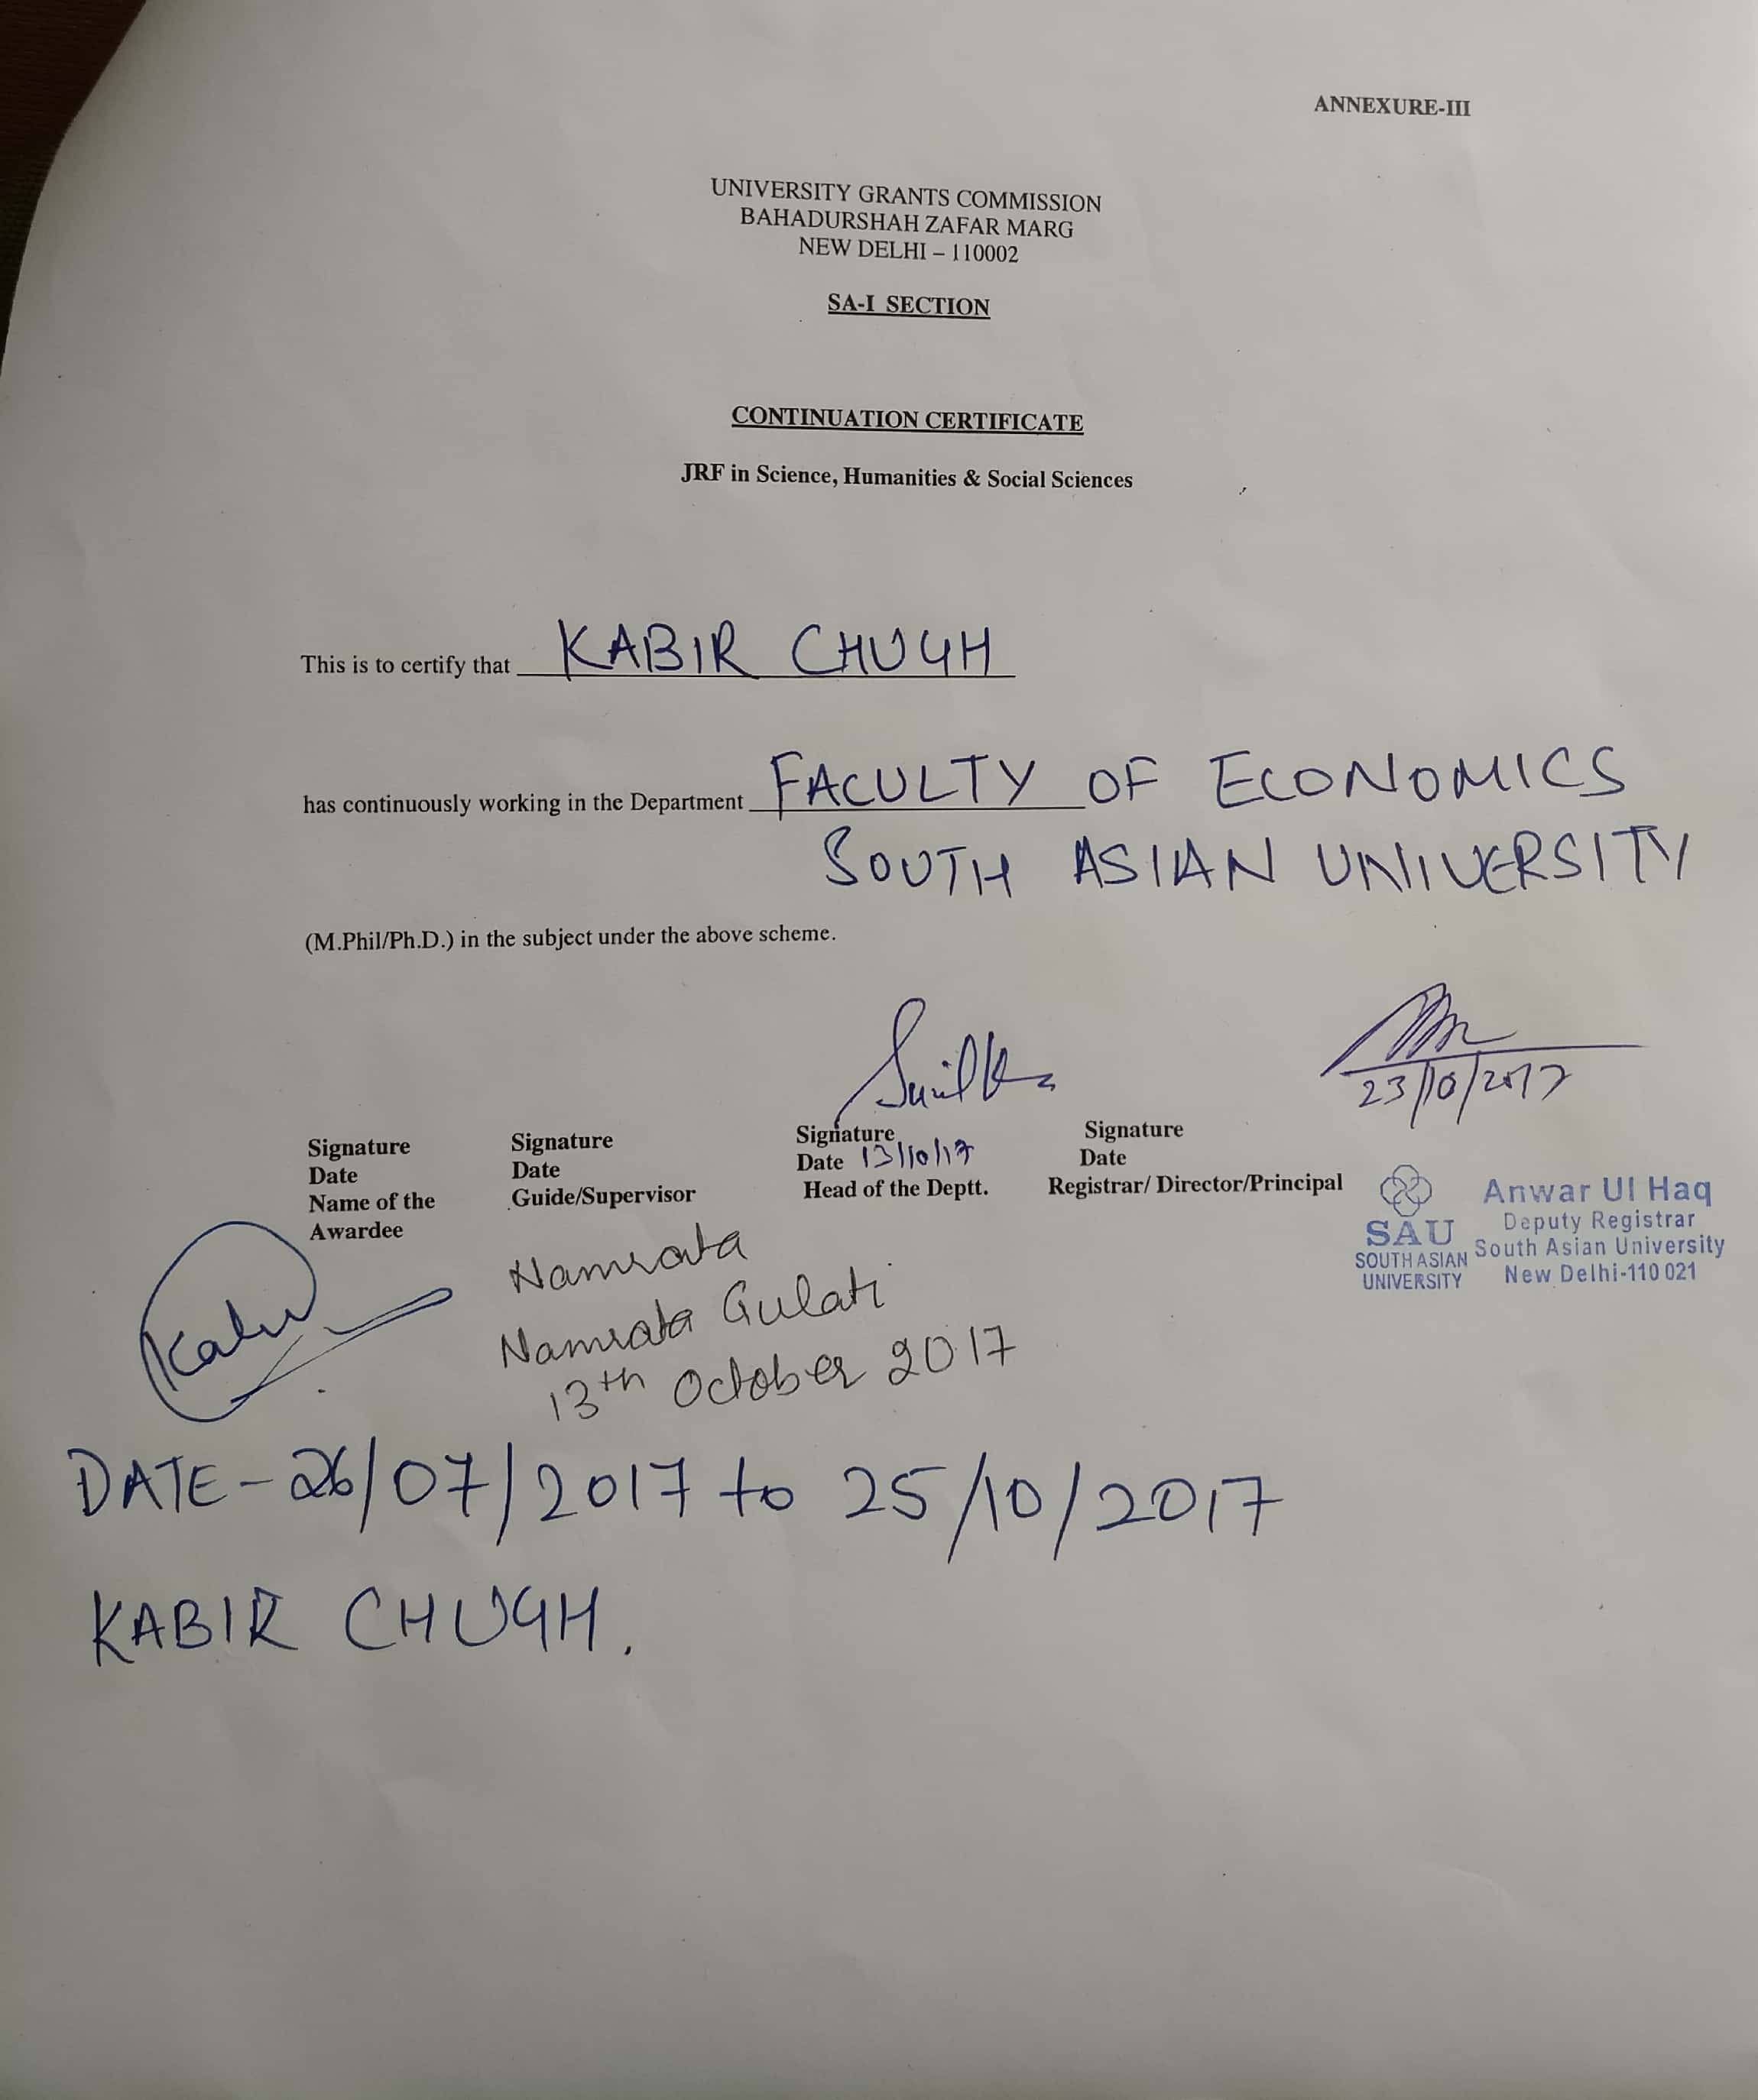 ANNEXURE-III
UNIVERSITY GRANTS COMMISSION
BAHADURSHAH ZAFAR MARG
NEW DELHI – 110002
SA-I SECTION
CONTINUATION CERTIFICATE
JRF in Science, Humanities & Social Sciences
This is to certify that KABIR CHUGH
has continuously working in the Department FACULTY OF ECONOMICS
SOUTH ASIAN UNIVERSITY
(M.Phil/Ph.D.) in the subject under the above scheme.
23/10/2017
Signature Signature Signature Signature
Date Date Date 13/10/17 Date
Name of the Guide/Supervisor Head of the Deptt. Registrar/ Director/Principal
Awardee
SAU
SOUTH ASIAN
UNIVERSITY
Anwar Ul Haq
Deputy Registrar
South Asian University
New Delhi-110 021
Kabir
Namrata
Namrata Gulati
13th October 2017
DATE - 26/07/2017 to 25/10/2017
KABIR CHUGH.